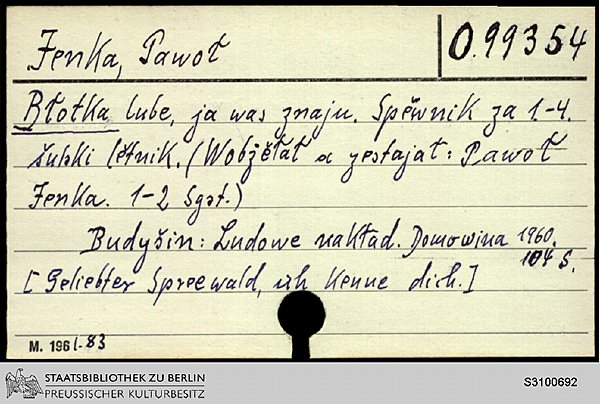 Jenka, Pawoł
0.99354
Błotka lube, ja was znaju. Spěwnik za 1.-4.
šulski lětnik. (Wobźěłał a zestajał: Pawoł
Jenka. 1-2 Sgst.)
Budyšin: Ludowe nakład. Domowina 1960.
104 S.
[Geliebter Spreewald, ich kenne dich.]
M. 1961-83
STAATSBIBLIOTHEK ZU BERLIN
PREUSSISCHER KULTURBESITZ
S3100692